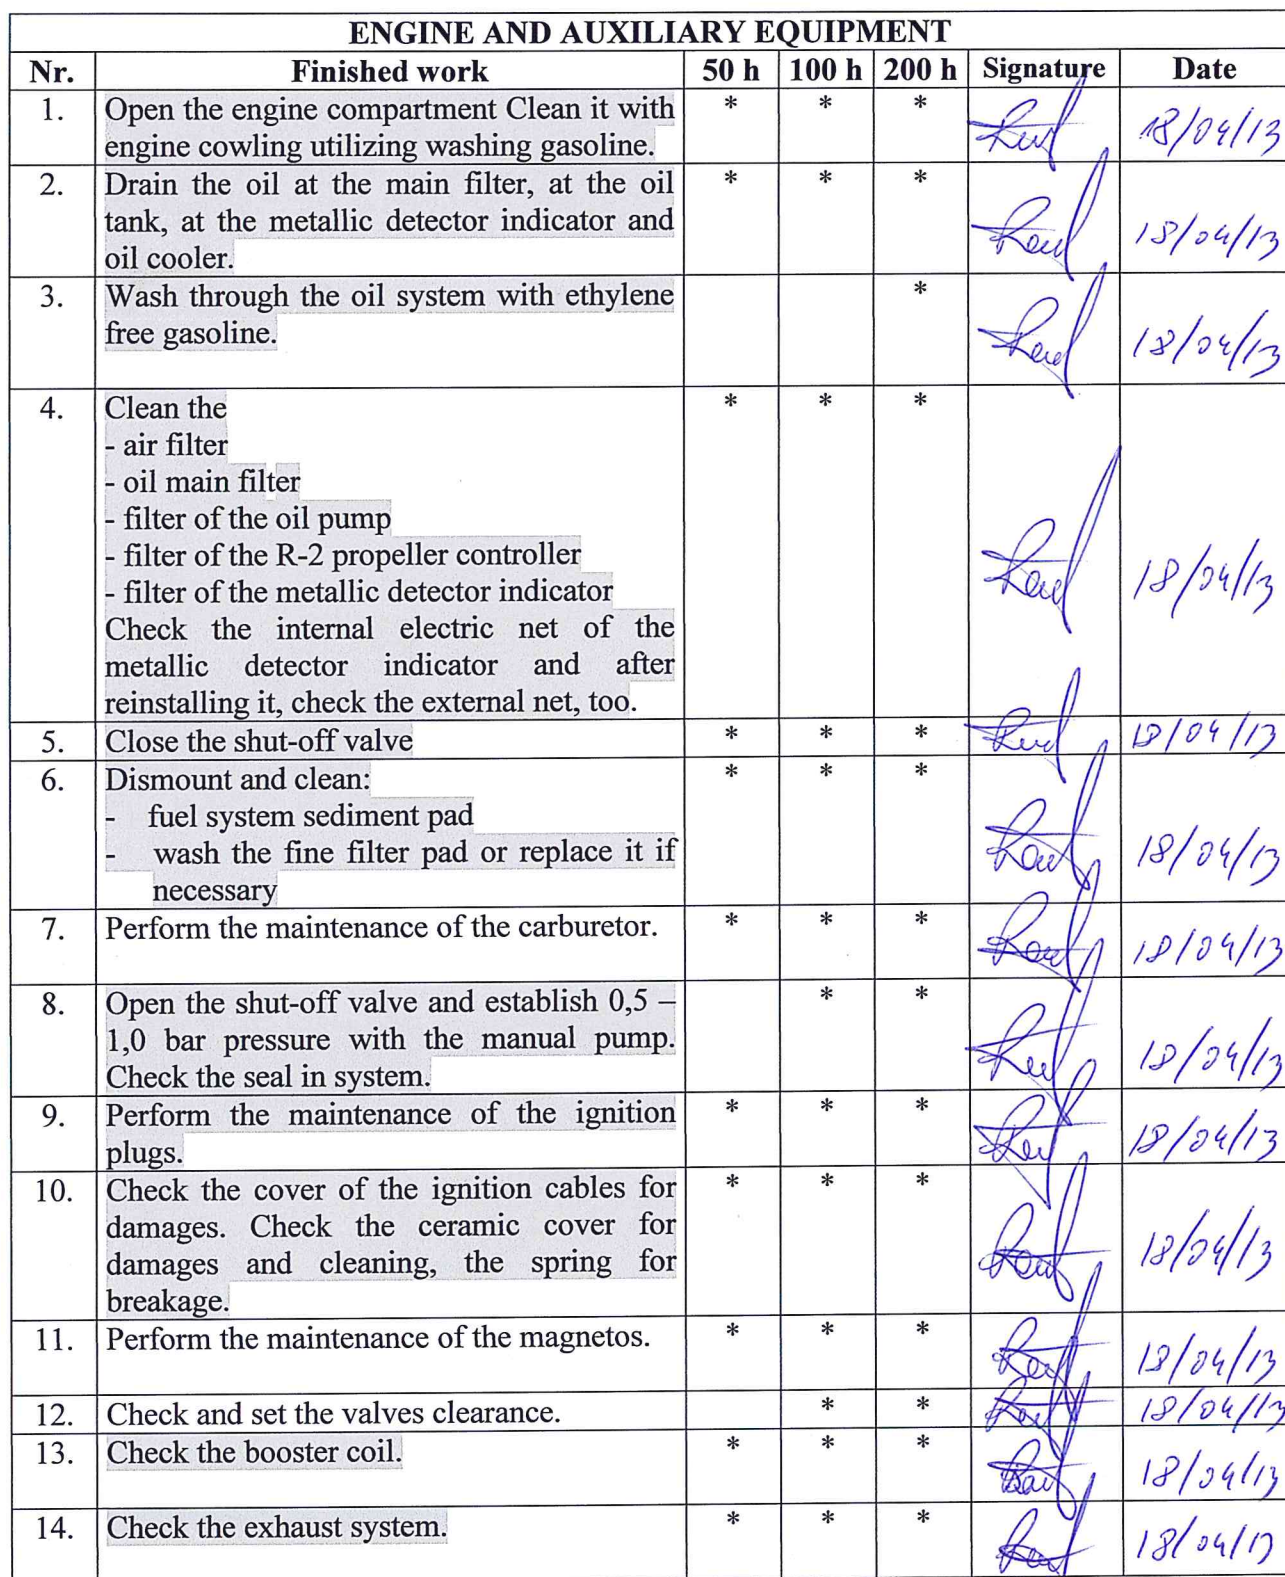 ENGINE AND AUXILIARY EQUIPMENT
Nr. Finished work 50 h 100 h 200 h Signature Date
1. Open the engine compartment Clean it with * * * 18/04/13
engine cowling utilizing washing gasoline.
2. Drain the oil at the main filter, at the oil * * * 18/04/13
tank, at the metallic detector indicator and
oil cooler.
3. Wash through the oil system with ethylene * 18/04/13
free gasoline.
4. Clean the * * * 18/04/13
- air filter
- oil main filter
- filter of the oil pump
- filter of the R-2 propeller controller
- filter of the metallic detector indicator
Check the internal electric net of the
metallic detector indicator and after
reinstalling it, check the external net, too.
5. Close the shut-off valve * * * 18/04/13
6. Dismount and clean: * * * 18/04/13
- fuel system sediment pad
- wash the fine filter pad or replace it if
necessary
7. Perform the maintenance of the carburetor. * * * 18/04/13
8. Open the shut-off valve and establish 0,5 – * * 18/04/13
1,0 bar pressure with the manual pump.
Check the seal in system.
9. Perform the maintenance of the ignition * * * 18/04/13
plugs.
10. Check the cover of the ignition cables for * * * 18/04/13
damages. Check the ceramic cover for
damages and cleaning, the spring for
breakage.
11. Perform the maintenance of the magnetos. * * * 18/04/13
12. Check and set the valves clearance. * * 18/04/13
13. Check the booster coil. * * * 18/04/13
14. Check the exhaust system. * * * 18/04/13